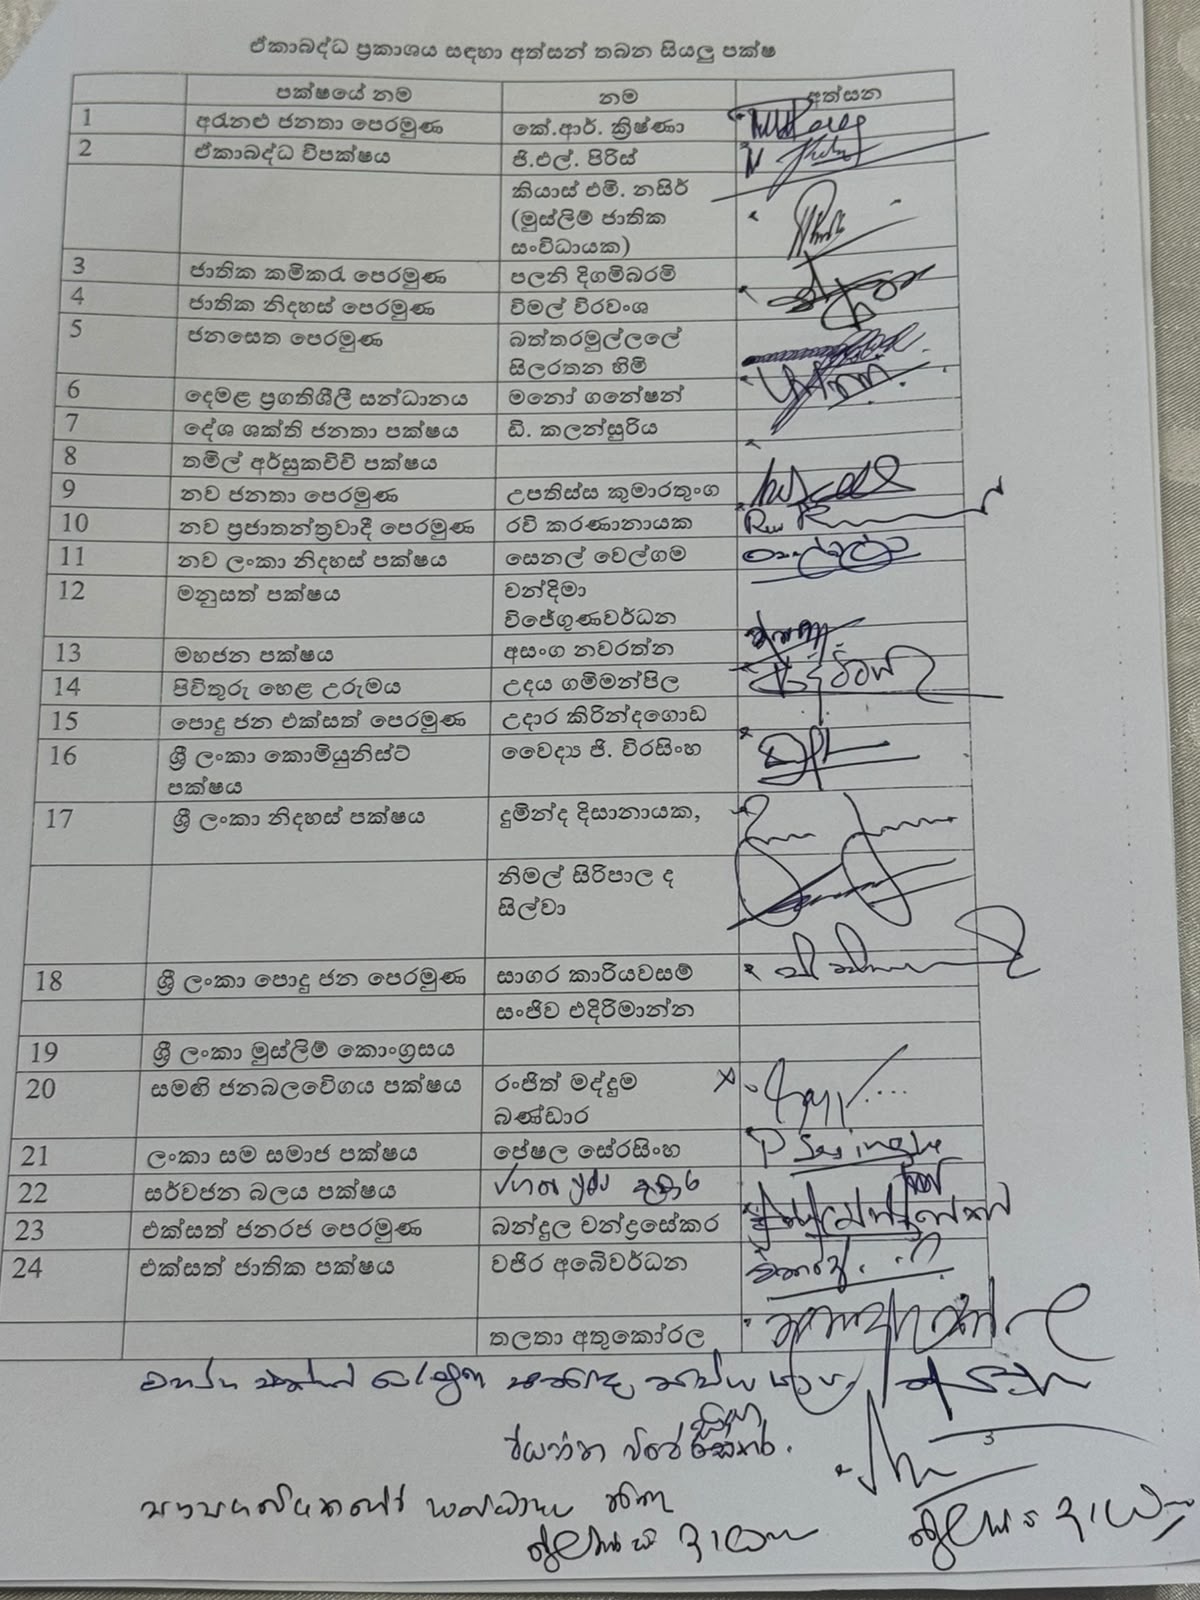 ඒකාබද්ධ ප්‍රකාශය සඳහා අත්සන් තබන සියලු පක්ෂ
පක්ෂයේ නම නම අත්සන
1 අරුනළු ජනතා පෙරමුණ කේ.ආර්. ක්‍රිෂ්ණා
2 ඒකාබද්ධ විපක්ෂය ජී.එල්. පීරිස්
කියාස් එම්. නසීර්
(මුස්ලිම් ජාතික
සංවිධායක)
3 ජාතික කම්කරු පෙරමුණ පලනි දිගම්බරම්
4 ජාතික නිදහස් පෙරමුණ විමල් වීරවංශ
5 ජනසෙත පෙරමුණ බත්තරමුල්ලලේ
සීලරතන හිමි
6 දෙමළ ප්‍රගතිශීලී සන්ධානය මනෝ ගනේෂන්
7 දේශ ශක්ති ජනතා පක්ෂය ඩී. කලන්සූරිය
8 තමිල් අර්සුකච්චි පක්ෂය
9 නව ජනතා පෙරමුණ උපතිස්ස කුමාරතුංග
10 නව ප්‍රජාතන්ත්‍රවාදී පෙරමුණ රවි කරණානායක
11 නව ලංකා නිදහස් පක්ෂය සෙනල් වෙල්ගම
12 මනුසත් පක්ෂය චන්දිමා
විජේගුණවර්ධන
13 මහජන පක්ෂය අසංග නවරත්න
14 පිවිතුරු හෙළ උරුමය උදය ගම්මන්පිල
15 පොදු ජන එක්සත් පෙරමුණ උදාර කිරින්දගොඩ
16 ශ්‍රී ලංකා කොමියුනිස්ට් වෛද්‍ය ජී. වීරසිංහ
පක්ෂය
17 ශ්‍රී ලංකා නිදහස් පක්ෂය දුමින්ද දිසානායක,
නිමල් සිරිපාල ද
සිල්වා
18 ශ්‍රී ලංකා පොදු ජන පෙරමුණ සාගර කාරියවසම්
සංජීව එදිරිමාන්න
19 ශ්‍රී ලංකා මුස්ලිම් කොංග්‍රසය
20 සමඟි ජනබලවේගය පක්ෂය රංජිත් මද්දුම
බණ්ඩාර
21 ලංකා සම සමාජ පක්ෂය පේෂල සේරසිංහ
22 සර්වජන බලය පක්ෂය
23 එක්සත් ජනරජ පෙරමුණ බන්දුල චන්ද්‍රසේකර
24 එක්සත් ජාතික පක්ෂය වජිර අබේවර්ධන
තලතා අතුකෝරල
3